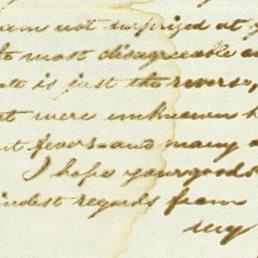 am not surprised at y
most disagreeable a
is just the reverse,
at were unknown
t fevers and many
I hope your goods
indest regards from
my